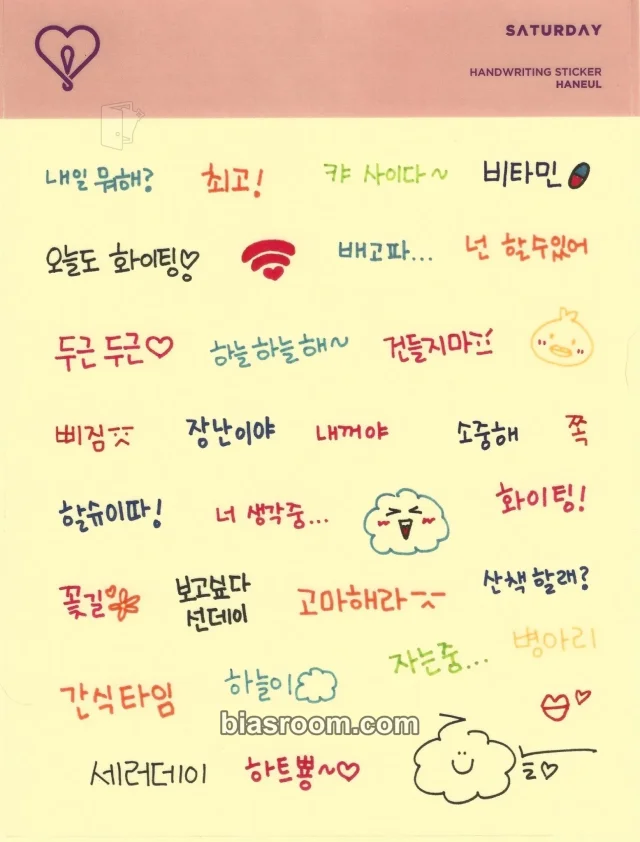 SATURDAY
HANDWRITING STICKER
HANEUL
내일 뭐해?
최고!
캬 사이다~
비타민
오늘도 화이팅♡
배고파...
넌 할수있어
두근두근♡
하늘하늘해~
건들지마
삐짐
장난이야
내꺼야
소중해
쪽
할슈이따!
너 생각중...
화이팅!
꽃길
보고싶다
선데이
고마해라
산책할래?
간식타임
하늘이
자는중...
병아리
biasroom.com
세러데이
하트뿅~♡